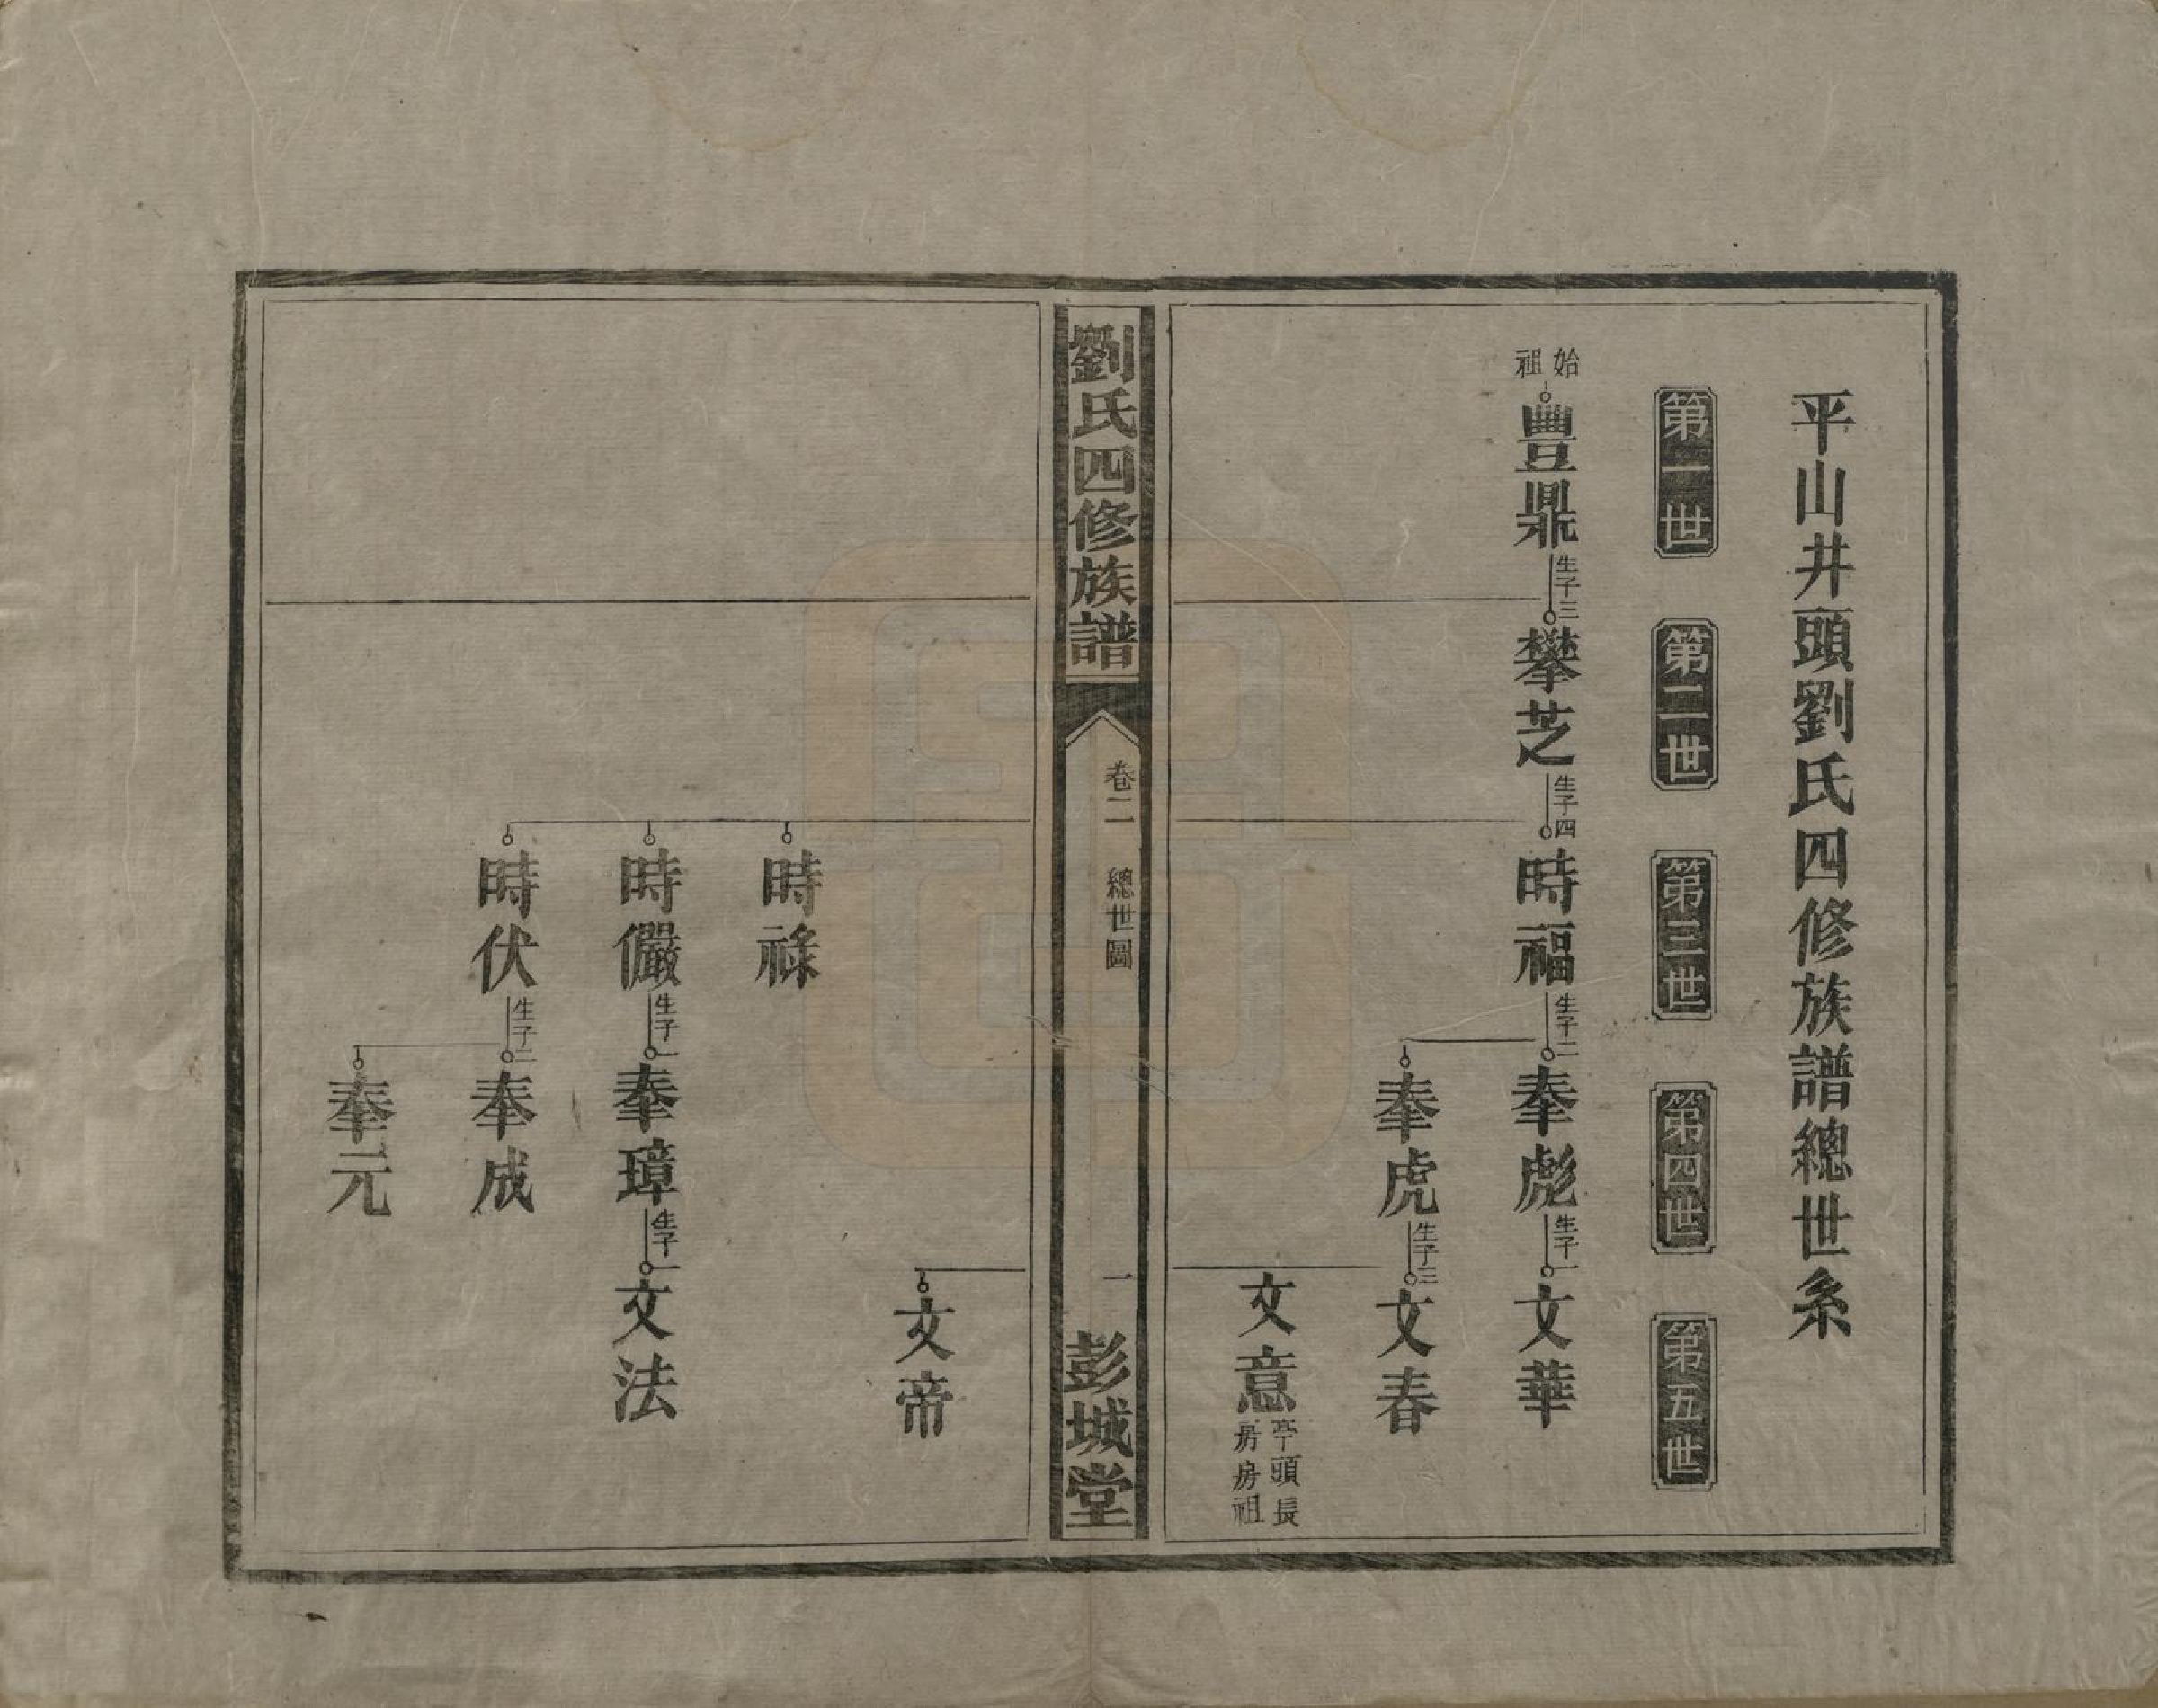 平山井頭劉氏四修族譜總世系
第一世
第二世
第三世
第四世
第五世
始祖
豐鼎
生子三
攀芝
生子四
時福
生子二
奉彪
生子一
文華
奉虎
生子三
文春
文意
亭頭長房房祖
劉氏四修族譜
卷二
總世圖
一
彭城堂
文帝
時祿
時儼
生子一
奉璋
生子一
文法
時伏
生子二
奉成
奉元